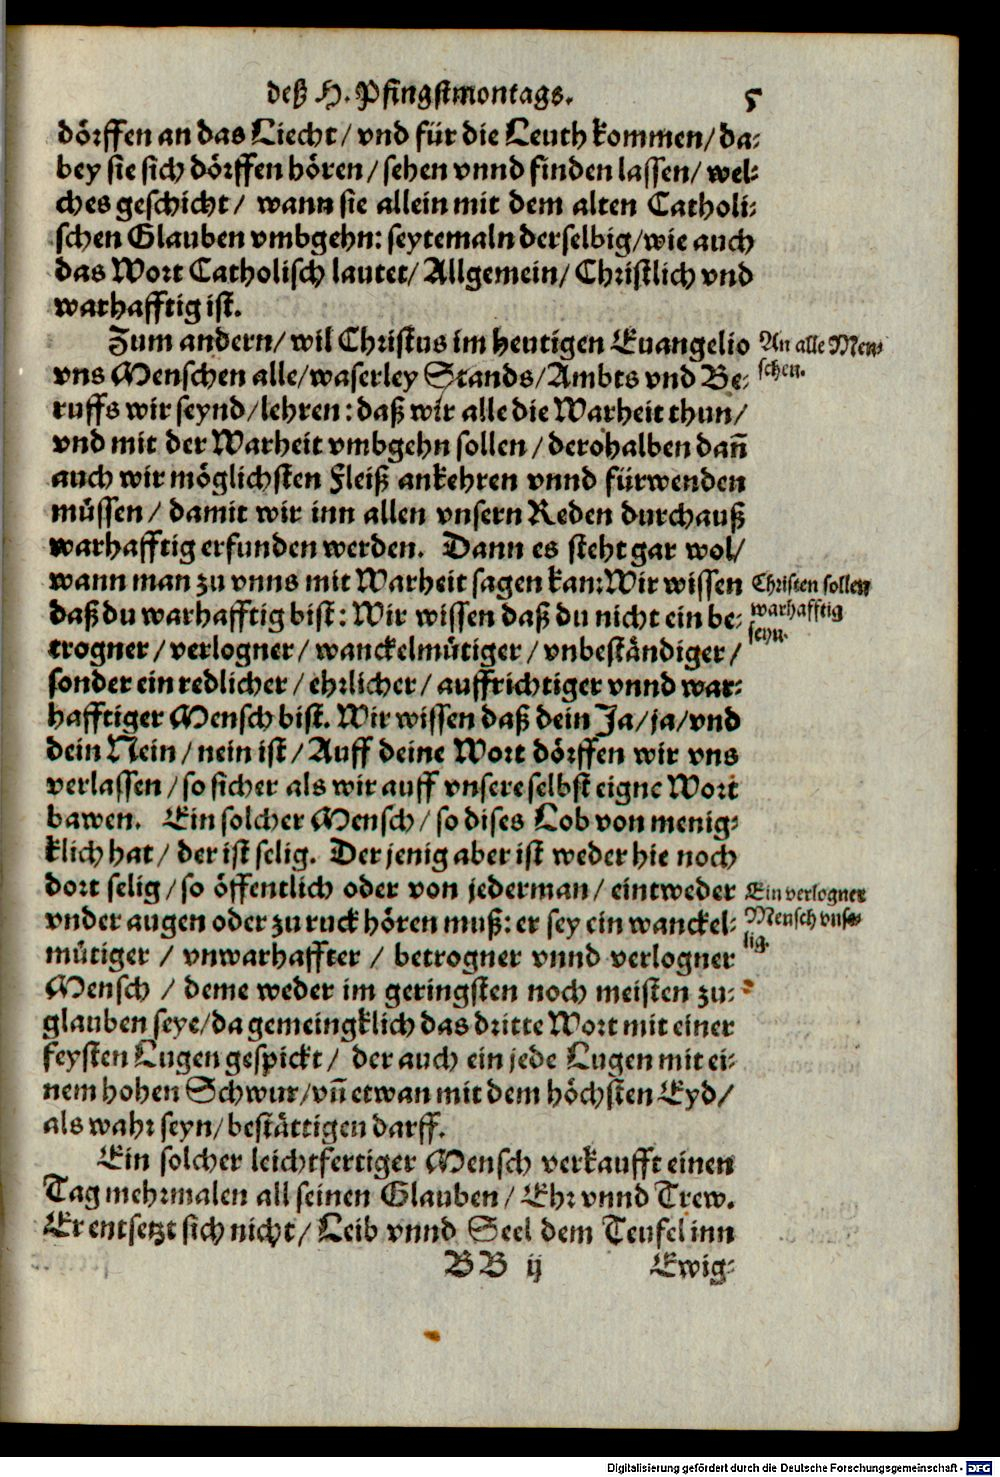 deß H. Pfingstmontags. 5
dörffen an das Liecht/ vnd für die Leuth kommen/ da-
bey sie sich dörffen hören/ sehen vnnd finden lassen/ wel-
ches geschicht/ wann sie allein mit dem alten Catholi-
schen Glauben vmbgehn: seytemaln derselbig/ wie auch
das Wort Catholisch lautet/ Allgemein/ Christlich vnd
warhafftig ist.
Zum andern/ wil Christus im heutigen Euangelio
An alle Men-
schen.
vns Menschen alle/ waserley Stands/ Ambts vnd Be-
ruffs wir seynd/ lehren: daß wir alle die Warheit thun/
vnd mit der Warheit vmbgehn sollen/ derohalben dañ
auch wir möglichsten Fleiß ankehren vnnd fürwenden
müssen/ damit wir inn allen vnsern Reden durchauß
warhafftig erfunden werden. Dann es steht gar wol/
wann man zu vnns mit Warheit sagen kan: Wir wissen
Christen sollen
warhafftig
seyn.
daß du warhafftig bist: Wir wissen daß du nicht ein be-
trogner/ verlogner/ wanckelmütiger/ vnbeständiger/
sonder ein redlicher/ ehrlicher/ auffrichtiger vnnd war-
hafftiger Mensch bist. Wir wissen daß dein Ja/ ja/ vnd
dein Nein/ nein ist/ Auff deine Wort dörffen wir vns
verlassen/ so sicher als wir auff vnsere selbst eigne Wort
bawen. Ein solcher Mensch/ so dises Lob von menig-
klich hat/ der ist selig. Der jenig aber ist weder hie noch
dort selig/ so öffentlich oder von jederman/ eintweder
Ein verlogner
Mensch vnse-
lig.
vnder augen oder zu ruck hören muß: er sey ein wanckel-
mütiger/ vnwarhaffter/ betrogner vnnd verlogner
Mensch/ deme weder im geringsten noch meisten zu-
glauben seye/ da gemeingklich das dritte Wort mit einer
feysten Lugen gespickt/ der auch ein jede Lugen mit ei-
nem hohen Schwur/ vñ etwan mit dem höchsten Eyd/
als wahr seyn/ bestättigen darff.
Ein solcher leichtfertiger Mensch verkaufft einen
Tag mehrmalen all seinen Glauben/ Ehr vnnd Trew.
Er entsetzt sich nicht/ Leib vnnd Seel dem Teufel inn
BB ij Ewig-
Digitalisierung gefördert durch die Deutsche Forschungsgemeinschaft - DFG